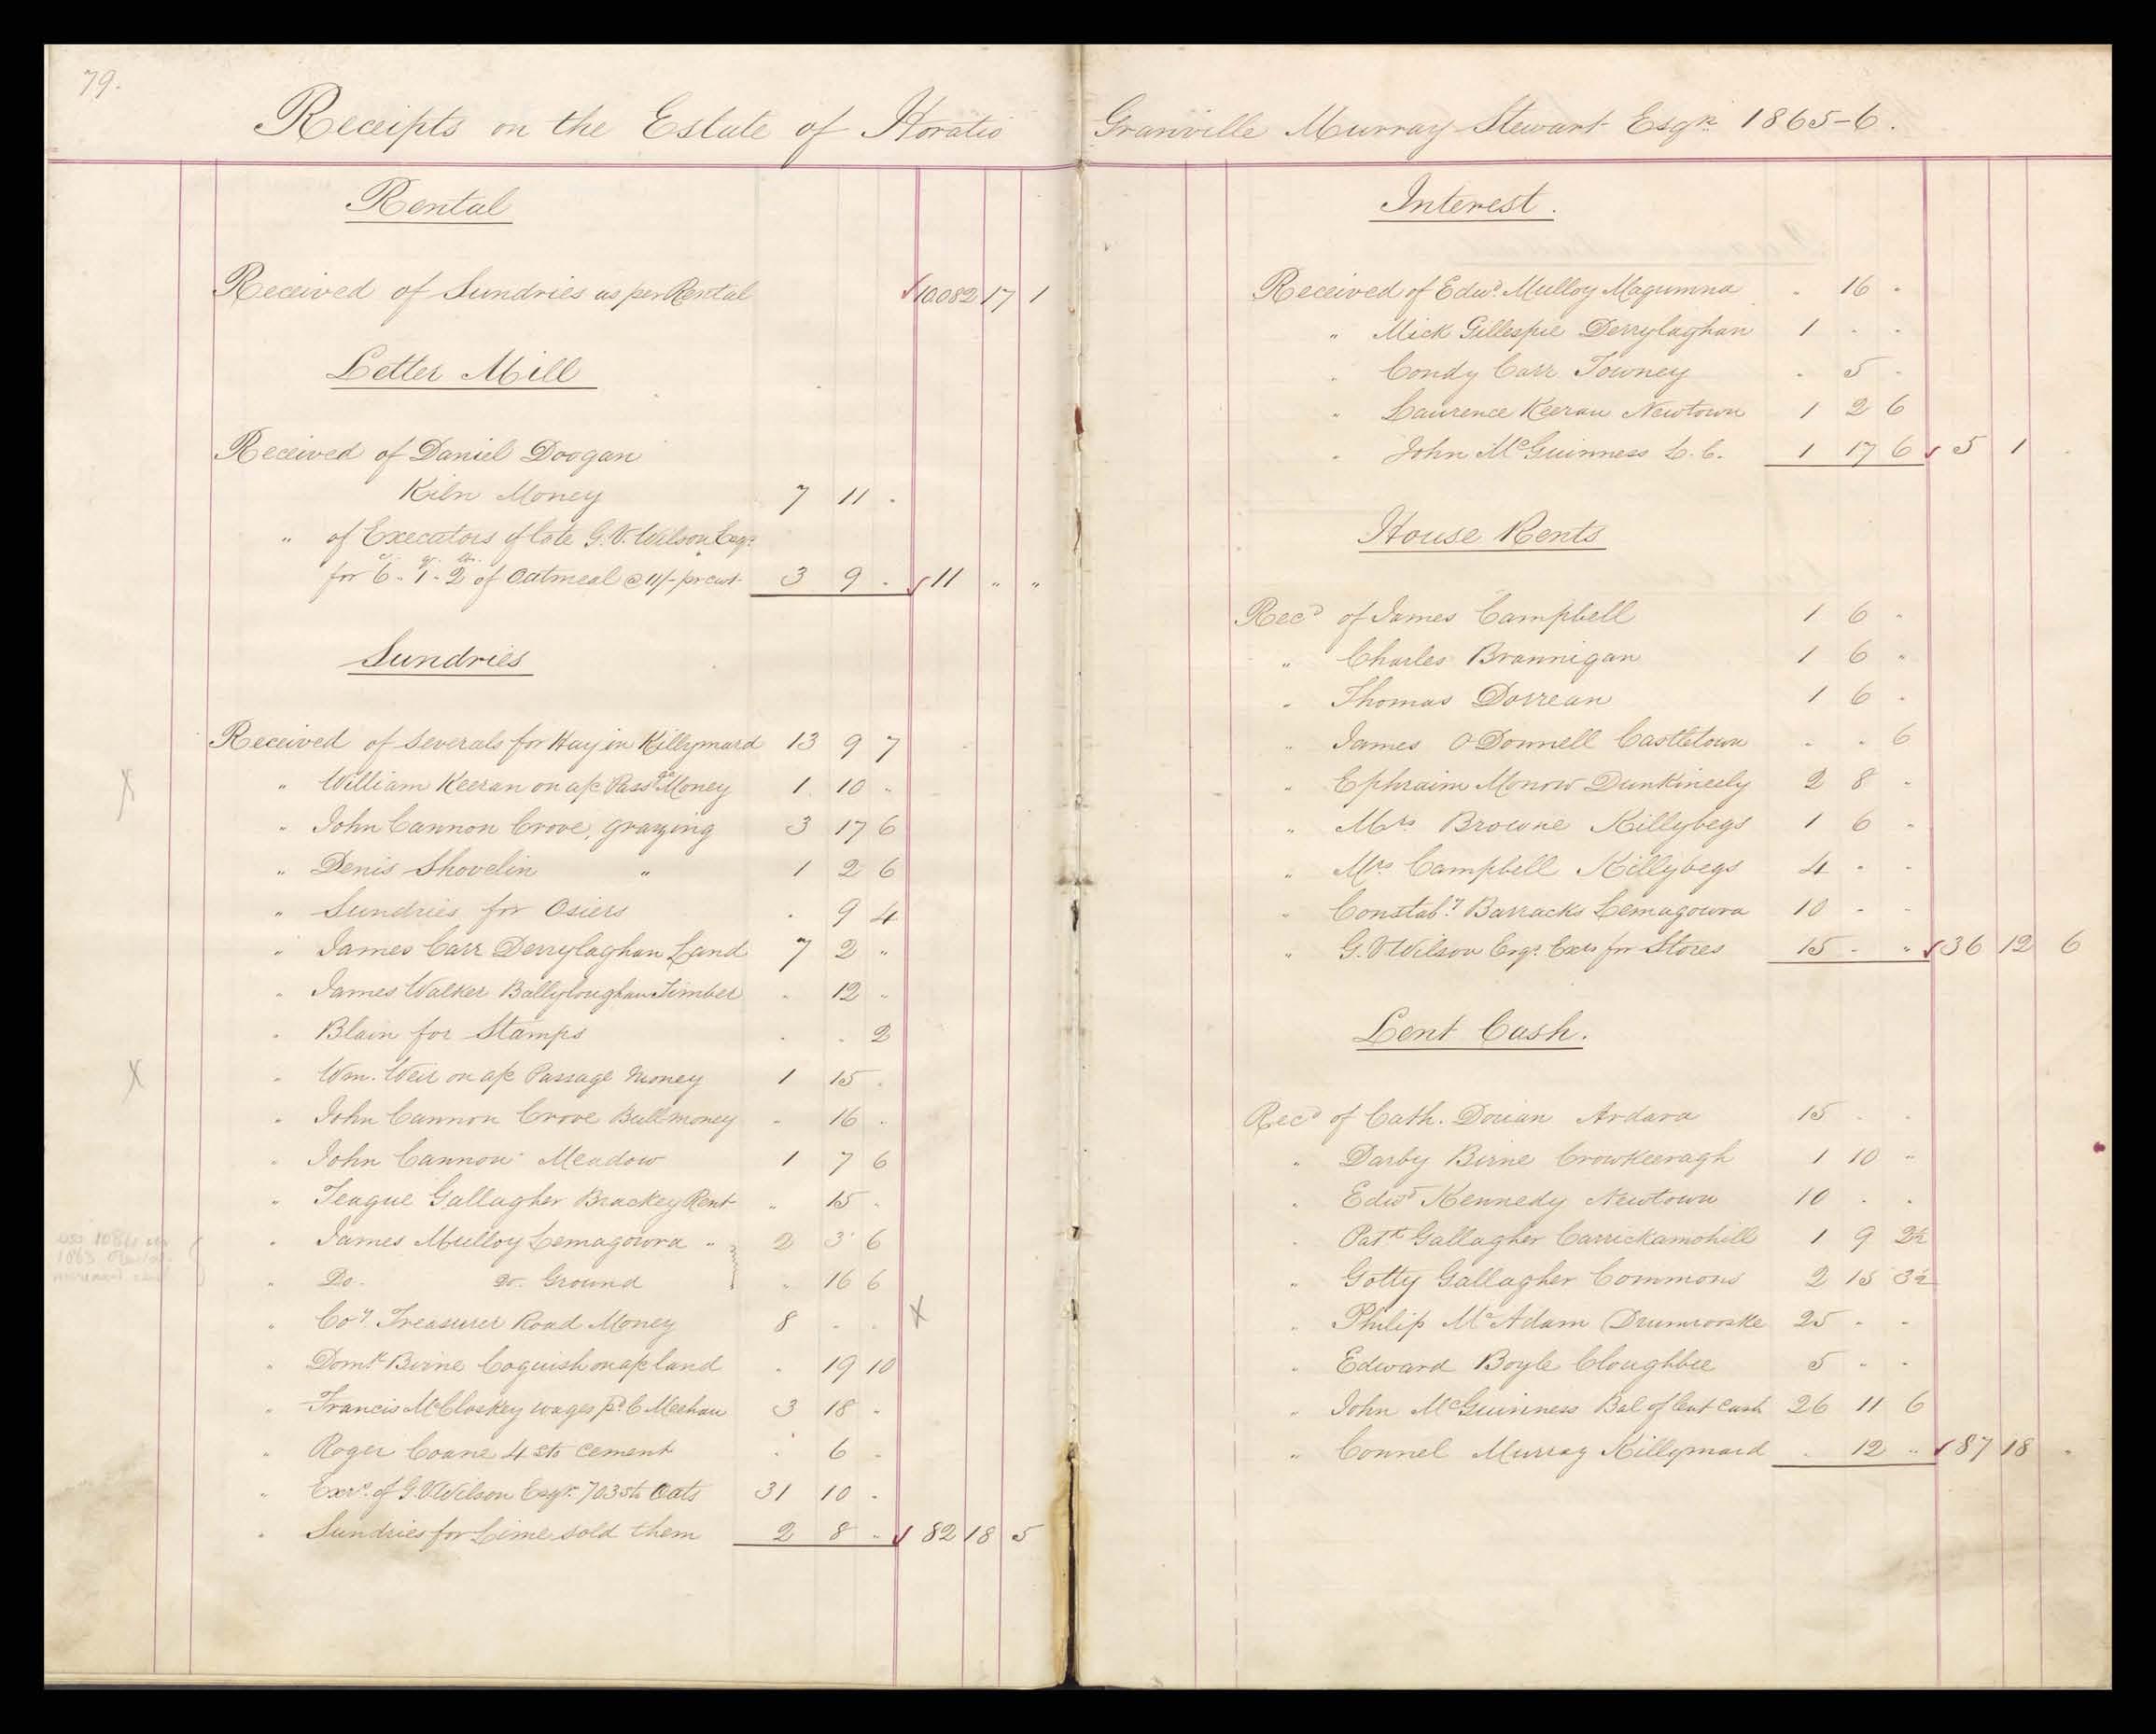 79.
Receipts on the Estate of Horatio Granville Murray Stewart Esqr. 1865-6.
Rental
Received of Sundries as per Rental √10082 17 1
Letter Mill
Received of Daniel Doogan
Kiln Money 7 11 -
" of Executors of late G.V. Wilson Esqr.
c. qr. lbs.
for 6 - 1 - 2 of Oatmeal @ 11/- pr cwt. 3 9 - √11 " "
Sundries
Received of Severals for Hay in Killymard 13 9 7
X " William Keeran on a/c Passge Money 1 10 "
" John Cannon Crove, grazing 3 17 6
" Denis Shovelin " 1 2 6
" Sundries for Osiers - 9 4
" James Carr Derrylaghan Land 7 2 "
" James Walker Ballyloughan Timber - 12 "
" Blain for Stamps - - 2
X " Wm. Weir on a/c Passage Money 1 15 -
" John Cannon Crove Bull-money - 16 -
" John Cannon Meadow 1 7 6
" Teague Gallagher Brackey Rent " 15 -
" James Mulloy Lemagowra " 2 3 6
" Do. Do. Ground " 16 6
" Coy. Treasurer Road Money 8 - - X
" Domk. Birne Coguish on a/c land - 19 10
" Francis McCloskey wages pd. C Meehan 3 18 -
" Roger Coane 4 sts cement - 6 -
" Exrs. of G.V. Wilson Esqr. 703 sts Oats 31 10 -
" Sundries for Lime sold them 2 8 " √ 82 18 5
Interest.
Received of Edwd. Mulloy Magumna - 16 -
" Mick Gillespie Derrylaghan 1 - -
" Condy Carr Towney - 5 -
" Laurence Keeran Newtown 1 2 6
" John McGuinness L.C. 1 17 6 √ 5 1 -
House Rents
Recd of James Campbell 1 6 -
" Charles Brannigan 1 6 "
" Thomas Dorrean 1 6 -
" James O'Donnell Castletown - - 6
" Ephraim Monow Dunkineely 2 8 "
" Mrs Browne Killybegs 1 6 "
" Mrs Campbell Killybegs 4 - -
" Constaby. Barracks Lemagowra 10 - -
" G.V. Wilson Esqr. Exrs for Stores 15 - " √36 12 6
Lent Cash.
Recd of Cath. Dorian Ardara 15 - -
" Darby Birne Crowkeeragh 1 10 "
" Edwd Kennedy Newtown 10 - -
" Patk Gallagher Carrickamohill 1 9 2½
" Gotty Gallagher Commons 2 15 3½
" Philip McAdam Drumrooske 25 - -
" Edward Boyle Cloughbee 5 - -
" John McGuinness Bal of Lent Cash 26 11 6
" Connel Murray Killymard - 12 " √87 18 "